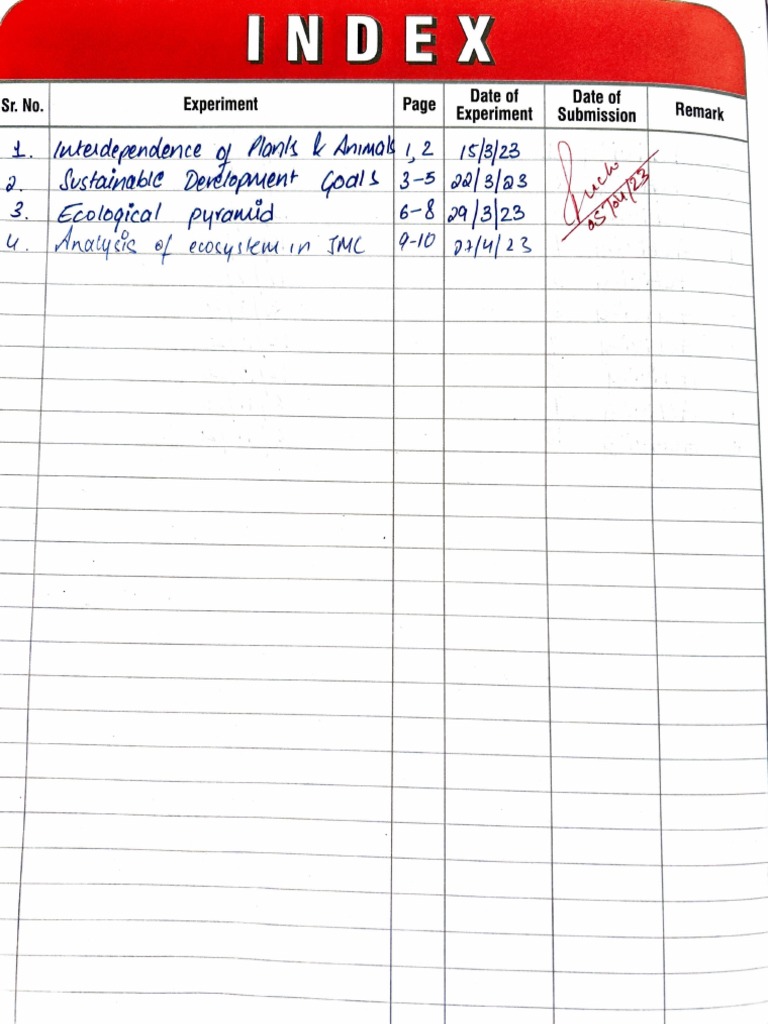 INDEX
Sr. No. Experiment Page Date of Experiment Date of Submission Remark
1. Interdependence of Plants & Animals 1, 2 15/3/23
2. Sustainable Development Goals 3-5 22/3/23
3. Ecological pyramid 6-8 29/3/23
05/04/23
4. Analysis of ecosystem in JMC 9-10 27/4/23